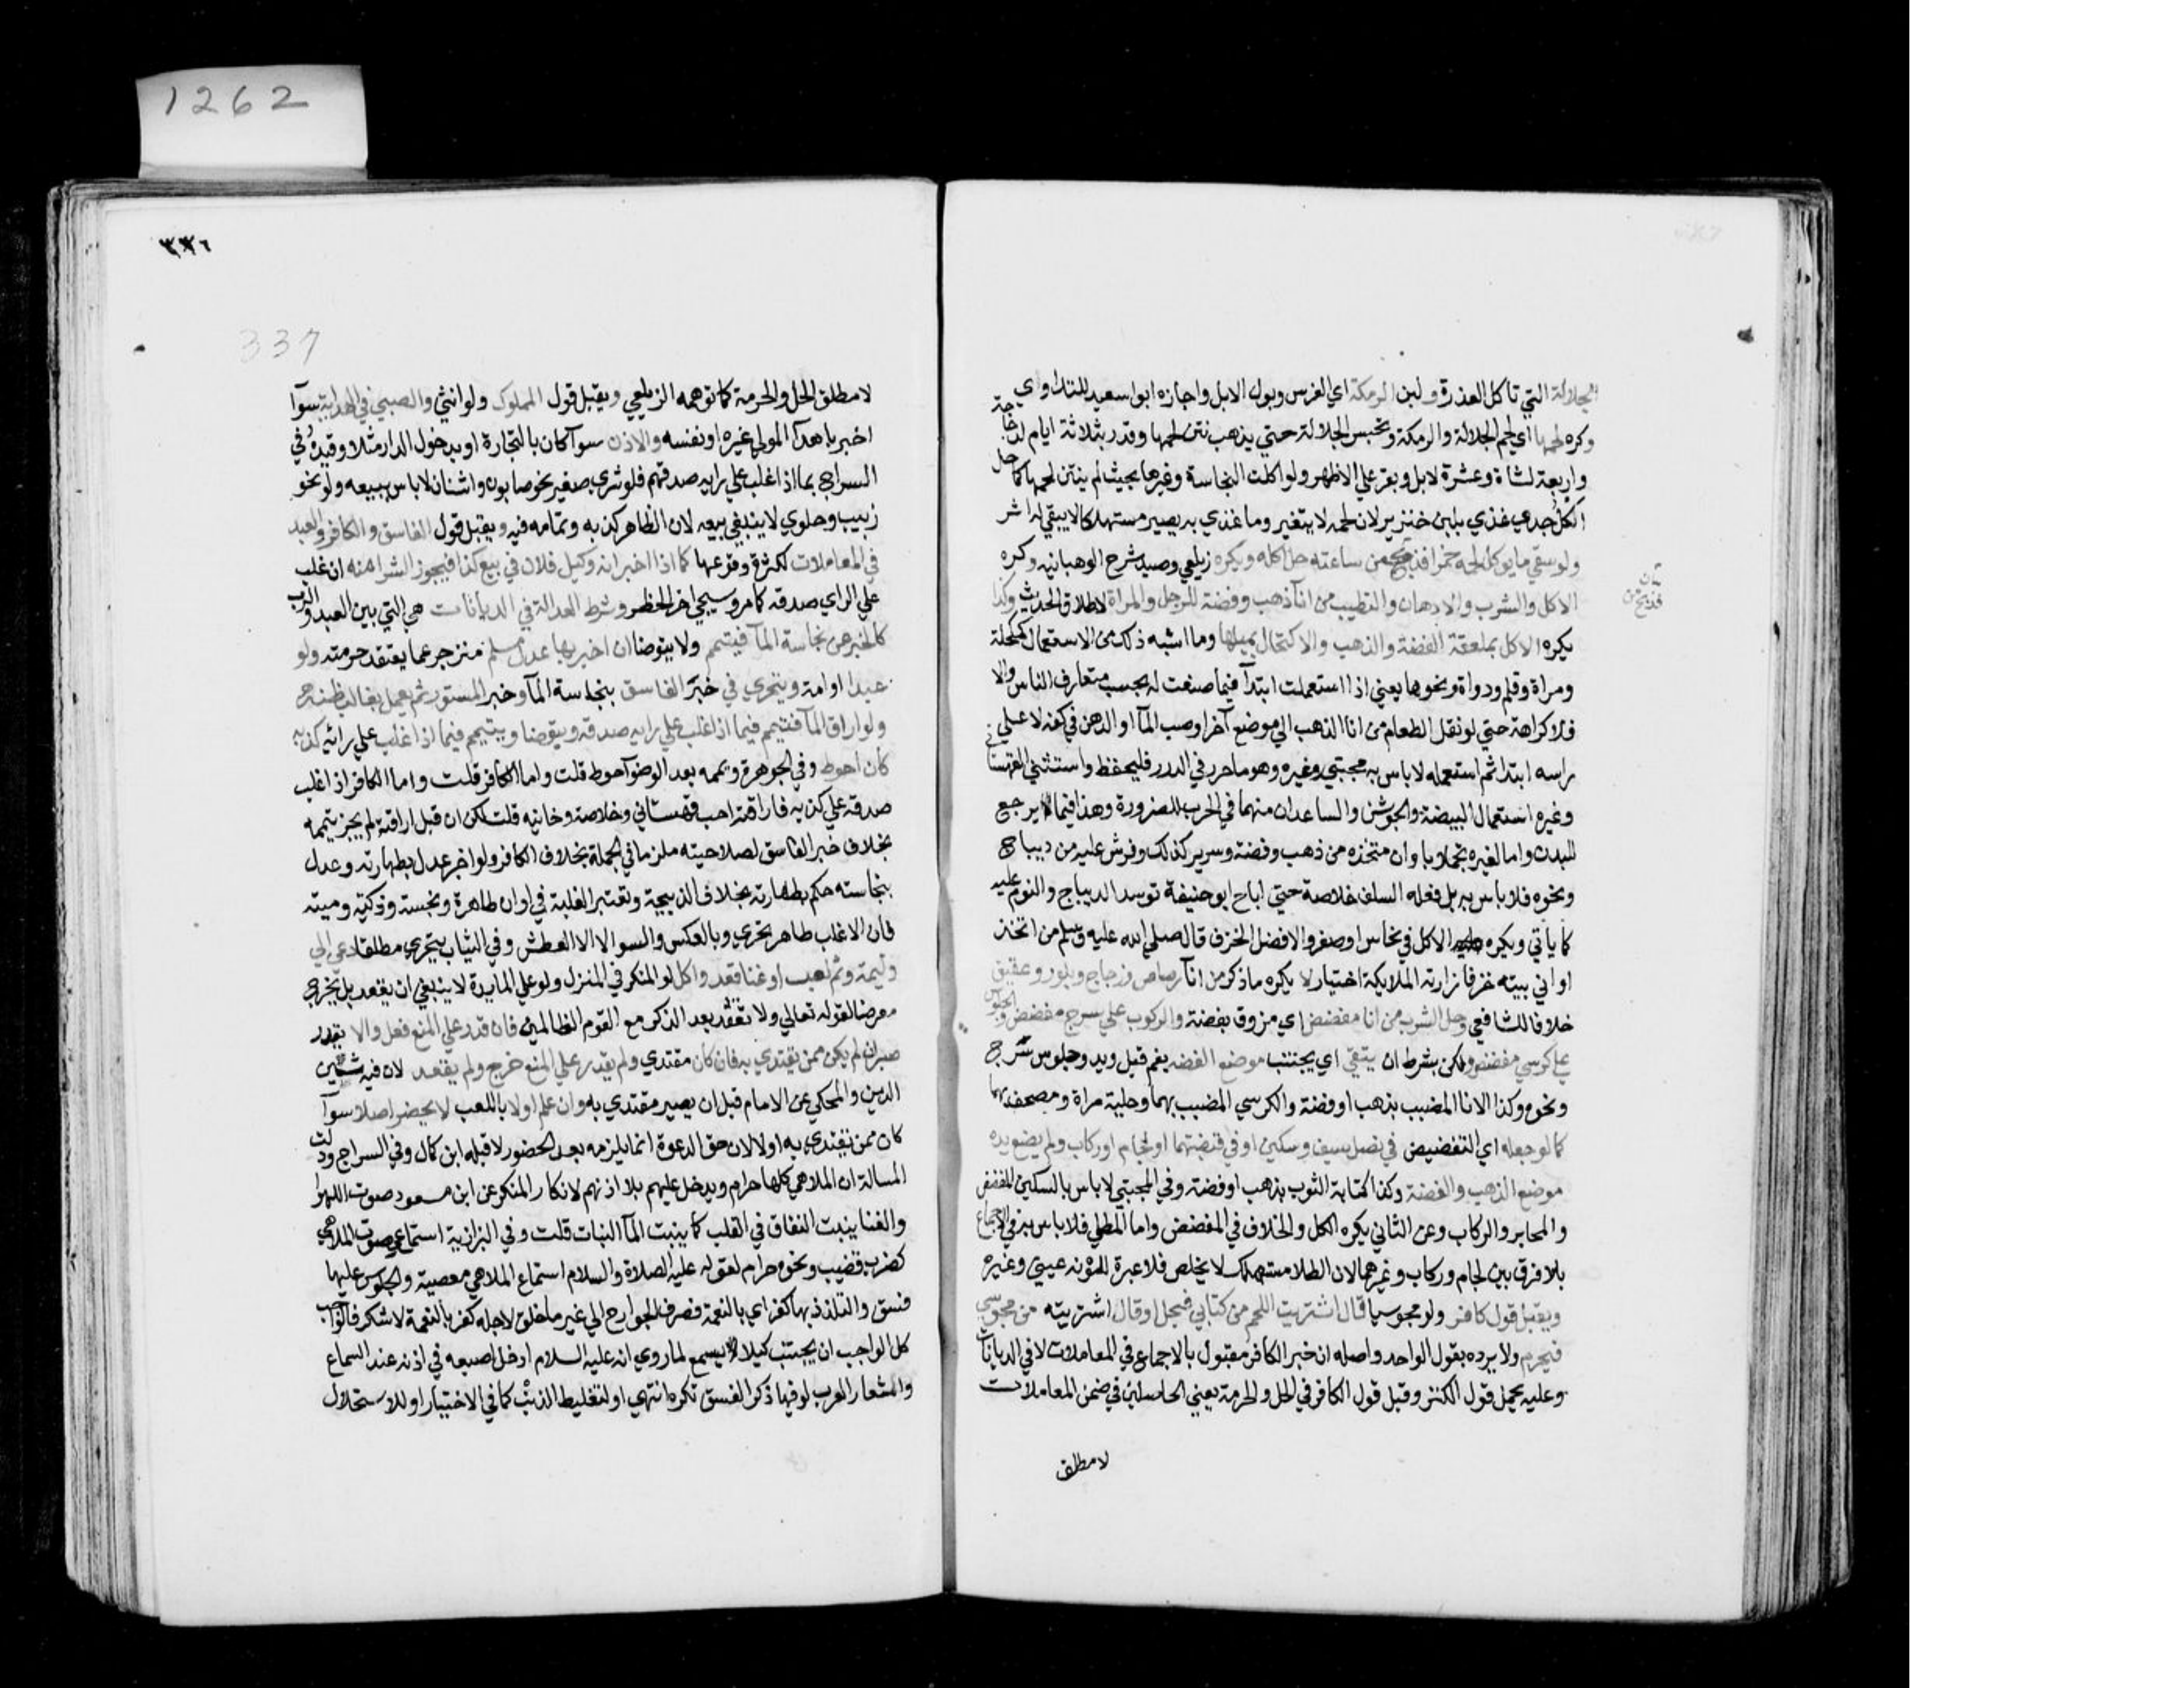 الجلالة التي تاكل العذرة ولبن الرمكة اي الفرس وبول الابل واجازه ابو اسعيد للتداوي
وكره لحمها اي لحم الجلالة والرمكة وتحبس الجلالة حتي يذهب نتن لحمها وقدر بثلاثة ايام لدجاجة
واربعة لشاة وعشرة لابل وبقر علي الاظهر ولو اكلت النجاسة وغيرها بحيث لم ينتن لحمها كما حل
اكل جدي غذي بلبن خنزير لان لحمه لا يتغير وما غذي به يصير مستهلكا لا يبقي له اثر
ولو سقي ما يوكل لحمه خمرا فذبح من ساعته حل اكله ويكره زيلعي وصيد شرح الوهبانيه وكره
الاكل والشرب والادهان والتطيب من انآ ذهب وفضة للرجل والمراة لاطلاق الحديث وكذا
يكره الاكل بملعقة الفضة والذهب والاكتحال بميلها وما اشبه ذلك من الاستعمال كمكحلة
ومراة وقلم ودواة ونحوها يعني اذا استعملت ابتدآ فيما صنعت له بحسب متعارف الناس والا
فلا كراهة حتي لو نقل الطعام من انا الذهب الي موضع آخر او صب المآ او الدهن في كفه لا علي
راسه ابتدا ثم استعمله لا باس به مجتبي وغيره وهو ما حرر في الدرر فليحفظ واستثني القهستاني
وغيره استعمال البيضة والجوشن والساعدان منهما في الحرب للضرورة وهذا فيما يرجع
للبدن واما لغيره تجملا باوان متخذه من ذهب وفضة وسرير كذلك وفرش عليه من ديباج
ونحوه فلا باس به بل فعله السلف خلاصة حتي اباح ابو حنيفة توسد الديباج والنوم عليه
كما ياتي ويكره الاكل في نحاس او صفر والافضل الخزف قال صلي الله عليه وسلم من اتخذ
اواني بيته خزفا زارته الملايكة اختيار لا يكره ما ذكر من انآ رصاص وزجاج وبلور وعقيق
خلافا للشافعي وحل الشرب من انا مفضض اي مزوق بفضة والركوب علي سرج مفضض والجلوس
علي كرسي مفضض ولكن بشرط ان يتقي اي يجتنب موضع الفضه بفم قيل ويد وجلوس سرج
ونحوه وكذا الانا المضبب بذهب او فضة والكرسي المضبب بهما وحلية مراة ومصحف بهما
كما لو جعله اي التفضيض في نصل سيف وسكين او في قبضتهما او لجام او ركاب ولم يضع يده
موضع الذهب والفضة وكذا كتابة الثوب بذهب او فضة وفي المجتبي لا باس بالسكين المفضض
والمحابر والركاب وعن الثاني يكره الكل والخلاف في المفضض واما المطلي فلا باس به في الاجماع
بلا فرق بين لجام وركاب وغيرهما لان الطلا مستهلك لا يخلص فلا عبرة للونه عيني وغيره
ويقبل قول كافر ولو مجوسيا قال اشتريت اللحم من كتابي فيحل او قال اشتريته من مجوسي
فيحرم ولا يرده بقول الواحد واصله ان خبر الكافر مقبول بالاجماع في المعاملات لا في الديانات
وعليه يحمل قول الكنز وقبل قول الكافر في الحل والحرمة يعني الحاصلين في ضمن المعاملات
لا مطلق
1262
٣٣٦
337
لا مطلق الحل والحرمة كما توهمه الزيلعي ويقبل قول المملوك ولو انثي والصبي في الهداية سوآ
اخبر باهدآ المولي غيره او نفسه والاذن سوآ كان بالتجارة او بدخول الدار مثلا وقيده في
السراج بما اذا غلب علي رايه صدقهم فلو شري صغير نحو صابون واشنان لا باس ببيعه ولو نحو
زبيب وحلوي لا ينبغي بيعه لان الظاهر كذبه وتمامه فيه ويقبل قول الفاسق والكافر والعبد
في المعاملات لكثرة وقوعها كما اذا اخبر انه وكيل فلان في بيع كذا فيجوز الشرا منه ان غلب
علي الراي صدقه كما مر وسيجي اخر الحظر وشرط العدالة في الديانات هي التي بين العبد والرب
كالخبر عن نجاسة المآ فيتيمم ولا يتوضا ان اخبر بها عدل مسلم منزجر عما يعتقد حرمته ولو
عبدا او امة ويتحري في خبر الفاسق بنجاسة المآ وخبر المستور ثم يعمل بغالب ظنه
ولو اراق المآ فتيمم فيما اذا غلب علي رايه صدقه ويتوضا ويتيمم فيما اذا غلب علي رائه كذبه
كان احوط وفي الجوهرة وتيممه بعد الوضوآ احوط قلت واما الكافر قلت واما الكافر اذا غلب
صدقه علي كذبه فاراقته احب قهستاني وخلاصة وخانيه قلت لكن ان قبل اراقته لم يجز تيممه
بخلاف خبر الفاسق لصلاحيته ملزما في الجملة بخلاف الكافر ولو اخبر عدل بطهارته وعدل
بنجاسته حكم بطهارته بخلاف الذبيحة وتعتبر الغلبة في اوان طاهرة ونجسة وذكية وميتة
فان الاغلب طاهر تحري وبالعكس والسوا لا الا لعطش وفي الثياب يتحري مطلقا دعي الي
وليمة وثم لعب او غنا قعد واكل لو المنكر في المنزل ولو علي المايدة لا ينبغي ان يقعد بل يخرج
معرضا لقوله تعالي ولا تقعد بعد الذكري مع القوم الظالمين فان قدر علي المنع فعل والا يقدر
صبر ان لم يكن ممن يقتدي به فان كان مقتدي ولم يقدر علي المنع خرج ولم يقعد لان فيه شين
الدين والمحكي عن الامام قبل ان يصير مقتدي به وان علم اولا باللعب لا يحضر اصلا سوآ
كان ممن يقتدي به اولا لان حق الدعوة انما يلزمه بعد الحضور لا قبله ابن كمال وفي السراج ودلت
المسالة ان الملاهي كلها حرام ويدخل عليهم بلا اذنهم لانكار المنكر عن ابن مسعود صوت اللهو
والغنا ينبت النفاق في القلب كما ينبت المآ النبات قلت وفي البزازية استماع صوت الملاهي
كضرب قضيب ونحوه حرام لقوله عليه الصلاة والسلام استماع الملاهي معصية والجلوس عليها
فسق والتلذذ بها كفر اي بالنعمة فصرف الجوارح الي غير ما خلق لاجله كفر بالنعمة لا شكر فالواجب
كل الواجب ان يجتنب كيلا يسمع لما روي انه عليه السلام ادخل اصبعه في اذنه عند السماع
واشعار العرب لو فيها ذكر الفسق تكره انتهي او لتغليط الذنب كما في الاختيار او للاستحلال